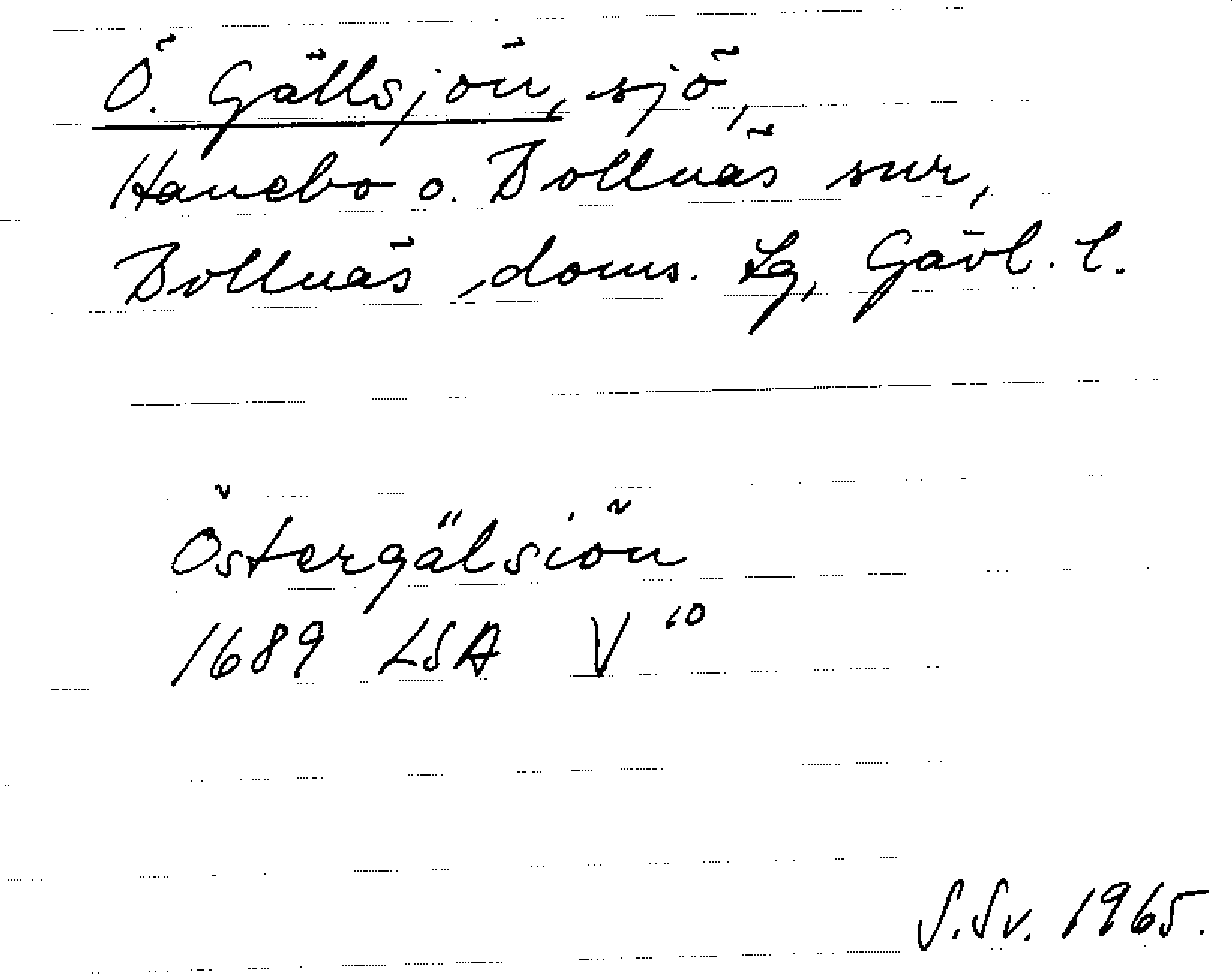 Ö. Gällsjön, sjö,
Hanebo o. Bollnäs snr,
Bollnäs doms. Lg, Gävl. l.
Östergälsiön
1689 LSA V 10
S.Sv. 1965.